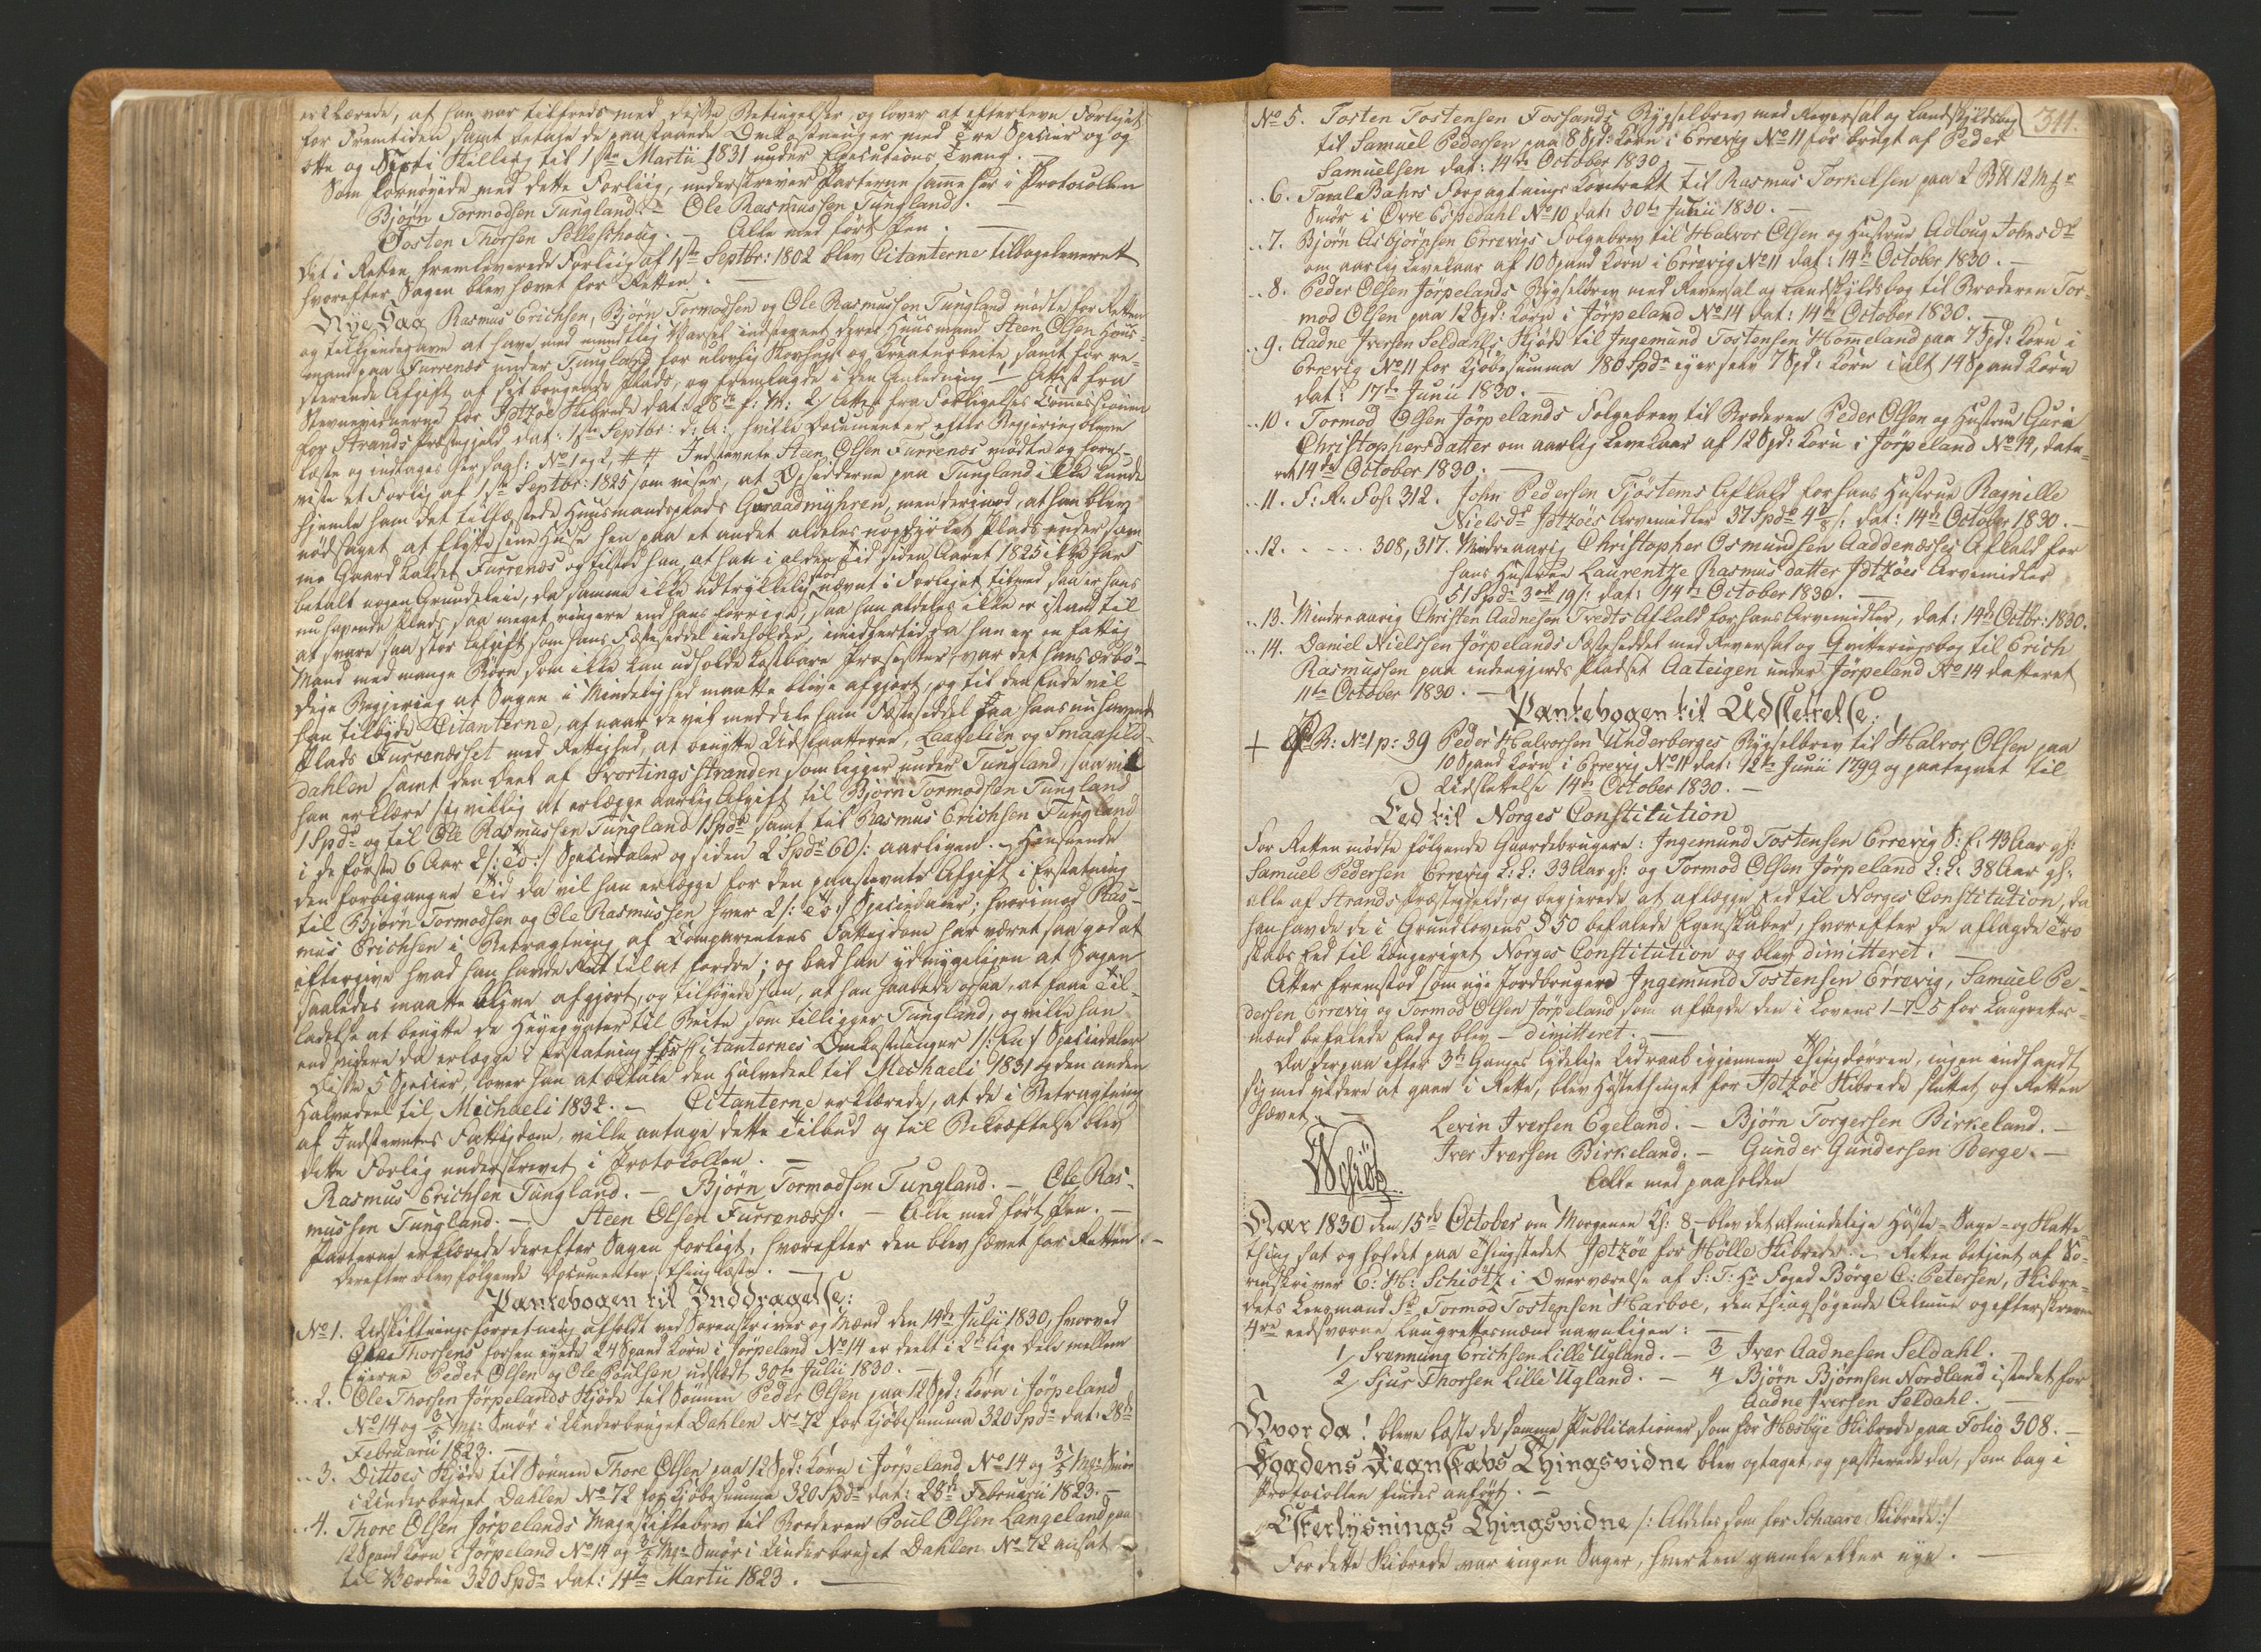 erklærede, at han var tilfreds med disse Betingelser, og lover at efterleve Forliget
for Fremtiden samt betale de paastaaende Omkostninger med Tre Specier og og
otte og Sexti Skilling til 1ste Martii 1831 under Executions Tvang. —
Som fornøyede med dette Forliig, underskriver Parterne samme her i Protocollen
Bjørn Tormodsen Tungland. — Ole Rasmussen Tungland. —
Tosten Thorsen Selleshoug. — Alle med ført Pen. —
Det i Retten fremleverede Forliig af 1ste Septbr: 1802 blev Citanterne tilbageleveret
hvorefter Sagen blev hævet for Retten. —
Nye Sag Rasmus Erichsen, Bjørn Tormodsen og Ole Rasmussen Tungland mødte for Retten
og tilkjendegave at have med mundtlig Varsel indstevnt deres Huusmand Steen Olsen Huus-
mand paa Furrenæs under Tungland for ulovlig Skovhugst og Kreaturbeite, samt for re-
sterende Afgift af sit brugende Plads, og fremlagde i den Anledning 1/ Attest fra
Stevnevidnerne for Idtzøe Skibrede dat: 28de f: M: 2/ Attest fra Forligelses Commissionen
for Strands Præstegjeld dat: 1ste Septbr: d: A: hvilke Documenter efter Begjering bleve
læste og indtages her saal: No 1 og 2, # # Indstevnte Steen Olsen Furrenæs mødte og fore-
viste et Forlig af 1ste Septbr: 1825 som viser, at Opsidderne paa Tungland ikke kunde
hjemle ham det tilfæstede Huusmandsplads Guraadmyhren, men derimod, at han blev
nødsaget at flytte sine Huse hen paa et andet aldeles uopdyrket Plads under sam-
me Gaard kaldet Furrenæs og tilstod han, at han i al den Tid siden Aaret 1825 ikke har
betalt nogen Grundeleie, da samme ikke udtrykkelig er nævnt i Forliget tilmed saa er hans
nu havende Plads saa meget ringere end hans forrige, saa han aldeles ikke er istand til
at svare saa stor Afgift som hans Fæsteseddel indeholder, imidlertid da han er en fattig
Mand med mange Børn som ikke kan udholde kostbare Processer, var det hans ærbø-
dige Begjering at Sagen i Mindelighed maatte blive afgjort, og til den Ende vil
han tilbyde Citanterne, at naar de vil meddele ham Fæsteseddel paa hans nu havende
Plads Furrenæsset med Rettighed, at benytte Udslaatterne, Laagelien og Smaasild-
dahlen samt den Deel af Svortingsstranden som ligger under Tungland, saa vil
han erklære sig villig at erlægge aarlig Afgift til Bjørn Tormodsen Tungland
1 Spdr og til Ole Rasmussen Tungland 1 Spdr samt til Rasmus Erichsen Tungland
i de første 6 Aar 2/: To :/ Speciedaler og siden 2 Spdr 60 /: aarligen. — Henseende
den forbigangne Tid da vil han erlægge for den paastevnte Afgift i Erstatning
til Bjørn Tormodsen og Ole Rasmussen hver 2/: To :/ Speciedaler; hvorimod Ras-
mus Erichsen i Betragtning af Comparentens Fattigdom har været saa god at
eftergive hvad han havde Ret til at fordre; og bad han ydmygeligen at Sagen
saaledes maatte blive afgjort, og tilføyede han, at han haabede ogsaa, at faae Til-
ladelse at benytte de Heyepynter til Beite, som tilligger Tungland, og ville han
end videre da erlægge i Erstatning for Citanternes Omkostninger 1/: En :/ Speciedaler
Disse 5 Specier, lover han at betale den Halvedeel til Michaeli 1831 og den anden
Halvedeel til Michaeli 1832. — Citanterne erklærede, at de i Betragtning
af Indstevntes Fattigdom, ville antage dette Tilbud og til Bekræftelse blev
dette Forlig underskrevet i Protokollen. —
Rasmus Erichsen Tungland. — Bjørn Tormodsen Tungland. — Ole Ras-
mussen Tungland. — Steen Olsen Furrenæss. — Alle med ført Pen. —
Parterne erklærede derefter Sagen forligt, hvorefter den blev hævet for Retten. —
Derefter blev følgende Documenter thinglæste. —
Pantebogen til Inddragelse:
No 1. Udskiftningsforretning afholdt ved Sorenskriver og Mænd den 14de Julii 1830, hvorved
Ole Thorsens forhen eyede 24 Spand Korn i Jørpeland No 14 er deelt i 2de lige Dele mellem
Eyerne Peder Olsen og Ole Poulsen udstædt 30te Julii 1830. —
.. 2. Ole Thorsen Jørpelands Skjøde til Sønnen Peder Olsen paa 12 Spd: Korn i Jørpeland
No 14 og 3/5 Mk: Smør i Underbruget Dahlen No 72 for Kjøbesumma 320 Spdr dat: 28de
Februarii 1823. —
.. 3. Dittoes Skjøde til Sønnen Thore Olsen paa 12 Spd: Korn i Jørpeland No 14 og 3/5 Mk: Smør
i Underbruget Dahlen No 72 for Kjøbesumma 320 Spdr dat: 28de Februarii 1823. —
.. 4. Thore Olsen Jørpelands Mageskiftebrev til Broderen Poul Olsen Langeland paa
12 Spand Korn i Jørpeland No 14 og 3/5 Mk: Smør i Underbruget Dahlen No 72 ansat
til Værdie 320 Spdr dat: 14de Martii 1823. —
311.
No 5. Tosten Tostensen Fossands Bygselbrev med Reversal og Landskyldsbog
til Samuel Pedersen paa 8 Spd: Korn i Errevig No 11 før brugt af Peder
Samuelsen dat: 14de October 1830. —
.. 6. Bahrs Forpagtnings Contrakt til Rasmus Torkelsen paa 2 12 Mkr
Smør i Øvre Espedahl No 10 dat: 30te Junii 1830. —
.. 7. Bjørn Asbjørnsen Errevigs Folgebrev til Halvor Olsen og Hustrue Adloug Johnsdr
om aarlig Levekaar af 10 Spand Korn i Errevig No 11 dat: 14de October 1830. —
.. 8. Peder Olsen Jørpelands Bygselbrev med Reversal og Landskyldsbog til Broderen Tor-
mod Olsen paa 12 Spd: Korn i Jørpeland No 14 dat: 14de October 1830. —
.. 9. Aadne Iversen Seldahls Skjøde til Ingemund Tostensen Hommeland paa 7 Spd: Korn i
Errevig No 11 for Kjøbesumma 180 Spdr eyer selv 7 Spd: Korn i alt 14 Spand Korn
dat: 17de Junii 1830. —
.. 10. Tormod Olsen Jørpelands Folgebrev til Broderen Peder Olsen og Hustrue Guri
Christophersdatter om aarlig Levekaar af 12 Spd: Korn i Jørpeland No 14, date-
ret 14de October 1830. —
.. 11. S: A. Fol. 312. John Pedersen Tjøstems Afkald for hans Hustrue Ragnille
Nielsdr Idtzøes Arvemidler 37 Spdr 4 /: dat: 14de October 1830. —
.. 12. . . . . . 308, 317. Mindreaarig Christopher Osmundsen Aaddenæsses Afkald for
hans Hustrue Laurentze Rasmusdatter Idtzøes Arvemidler
51 Spdr 3 ort 19 /: dat: 14de October 1830. —
.. 13. Mindreaarig Christen Aadnesen Tvedts Afkald for hans Arvemidler, dat: 14de Octbr: 1830.
.. 14. Daniel Nielssen Jørpelands Fæsteseddel med Reversal og Qvitteringsbog til Erich
Rasmussen paa indengjerds Pladset Aateigen under Jørpeland No 14 datteret
11te October 1830. —
Pantebogen til Udslettelse:
+ P: B: No 1 p: 39 Peder Halvorsen Underberges Bygselbrev til Halvor Olsen paa
10 Spand Korn i Errevig No 11 dat: 12te Junii 1799 og paategnet til
Udslettelse 14de October 1830. —
Eed til Norges Constitution
For Retten mødte følgende Gaardebrugere: Ingemund Tostensen Errevig S: f: 43 Aar gl:
Samuel Pedersen Errevig L: L: 33 Aar gl: og Tormod Olsen Jørpeland L: L: 38 Aar gl:
alle af Strands Præstegjeld, og begjerede at aflægge Eed til Norges Constitution, da
han havde de i Grundlovens § 50 befalede Egenskaber, hvorefter de aflagde Tro
skabs Eed til Kongeriget Norges Constitution og blev dimitteret. —
Atter fremstod som nye Jordbrugere Ingemund Tostensen Errevig, Samuel Pe-
dersen Errevig og Tormod Olsen Jørpeland som aflagde den i Lovens 1-7-5 for Laugrettes-
mænd befalede Eed og blev — dimitteret. —
Da derpaa efter 3de Ganges lydelige Udraab igjennem Thingdørren, ingen indfandt
sig med videre at gaae i Rette, blev Høstethinget for Idtzøe Skibrede sluttet og Retten
hævet. —
Levin Iversen Egeland. — Bjørn Torgersen Birkeland. —
Iver Iversen Birkeland. — Gunder Gundersen Berge. —
Schiøtz
Alle med paaholden
Aar 1830 den 15de October om Morgenen Kl: 8 — blev det almindelige Høste- Sage- og Skatte-
thing sat og holdet paa Thingstedet Idtzøe for Hølle Skibrede. — Retten betjent af So-
renskriver E: H: Schiøtz i Overværelse af S: T: Hr Foged Børge A: Petersen, Skibre-
dets Lensmand Sr Tormod Tostensen Harboe, den thingsøgende Almue og efterskrevne
4re eedsvorne Laugrettesmænd navnligen: —
1/ Svennung Erichsen Lille Ugland. — 3/ Iver Aadnesen Seldahl.
2/ Sjur Thorsen Lille Ugland. — 4/ Bjørn Bjørnsen Nordland istedet for
Aadne Iversen Seldahl. —
Hvor da! bleve læste de samme Publicationer som for Hesbye Skibrede paa Folio 308. —
Fogdens Regnskabs Thingsvidne blev optaget, og passerede da, som bag i
Protocollen findes anført. —
Efterlysnings Thingsvidne /: Aldeles som for Schaare Skibrede :/
For dette Skibrede var ingen Sager, hverken gamle eller nye. —